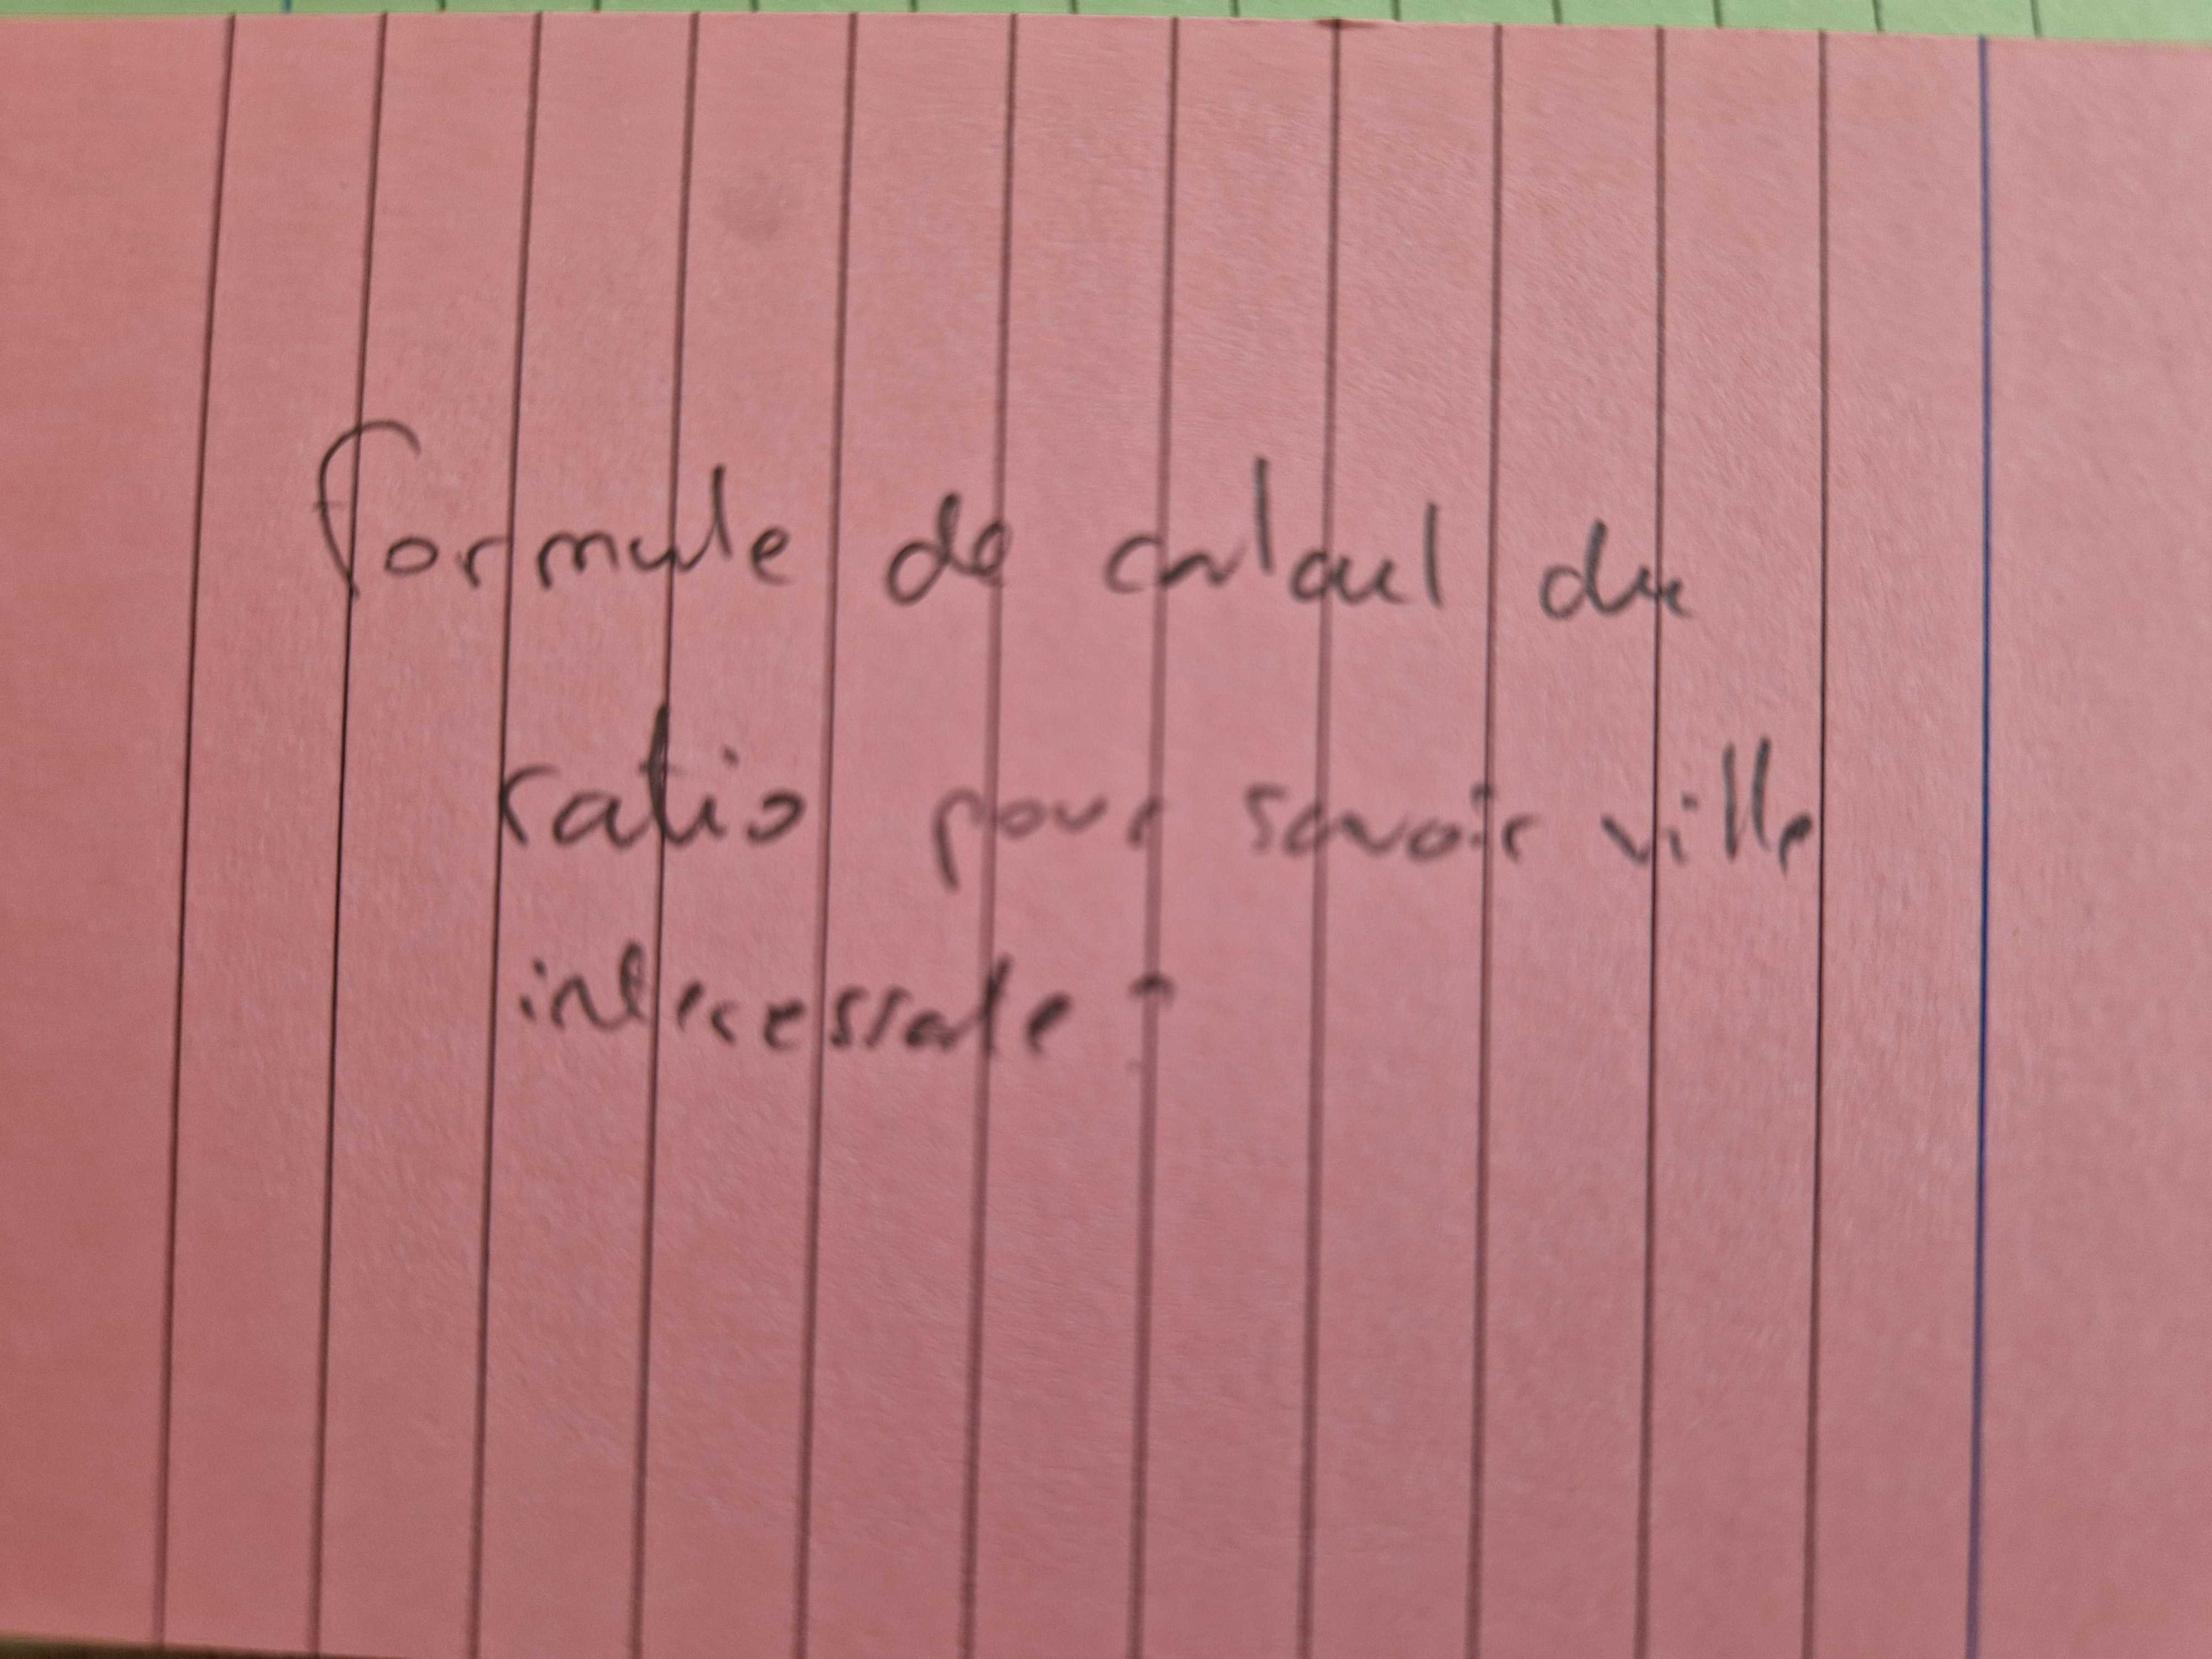 formule de calcul du
ratio pour savoir ville
interessate ?